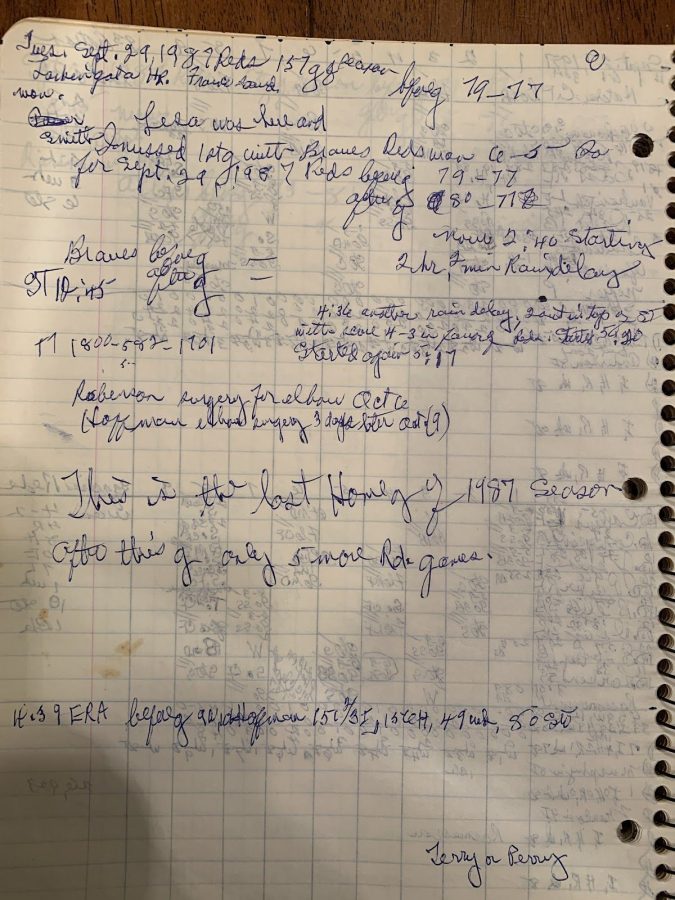 Tues. Sept. 29, 1987 Reds 157 g of season
HR. before g 79-77
won.
Lesa was here and
Smith I missed 1st g with Braves Reds won 6-5 So
for Sept. 29, 1987 Reds before g 79-77
after g 80-77
now 2:40 starting
Braves before g —
2 hr, 2 min Rain delay
ST 12:45 after g —
4:36 another rain delay, 2 out in top of 5I
with score 4-3 in favor of
Started again 5:17
1800-582-1701
Roberson surgery for elbow Oct 6
(Hoffman elbow surgery 3 days later Oct (9)
This is the last Home g of 1987 Season
after this g only 5 more Rds games.
4.39 ERA before g Hoffman 49 wk, 50 SO
Terry or Perry